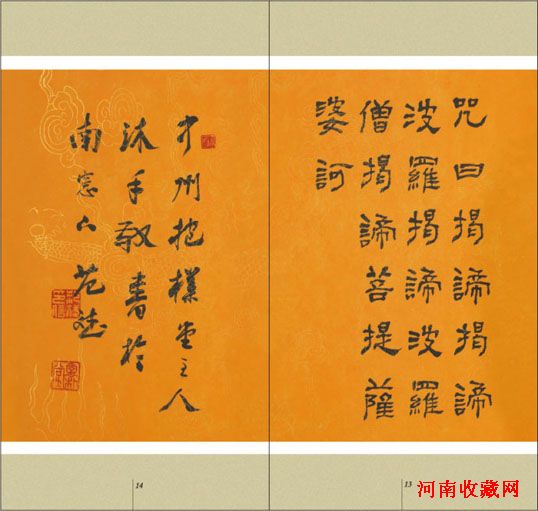 咒曰揭諦揭諦
波羅揭諦波羅
僧揭諦菩提薩
婆訶
中州抱樸堂主人
沐手敬書於
南窓下范
14
13
河南收藏网